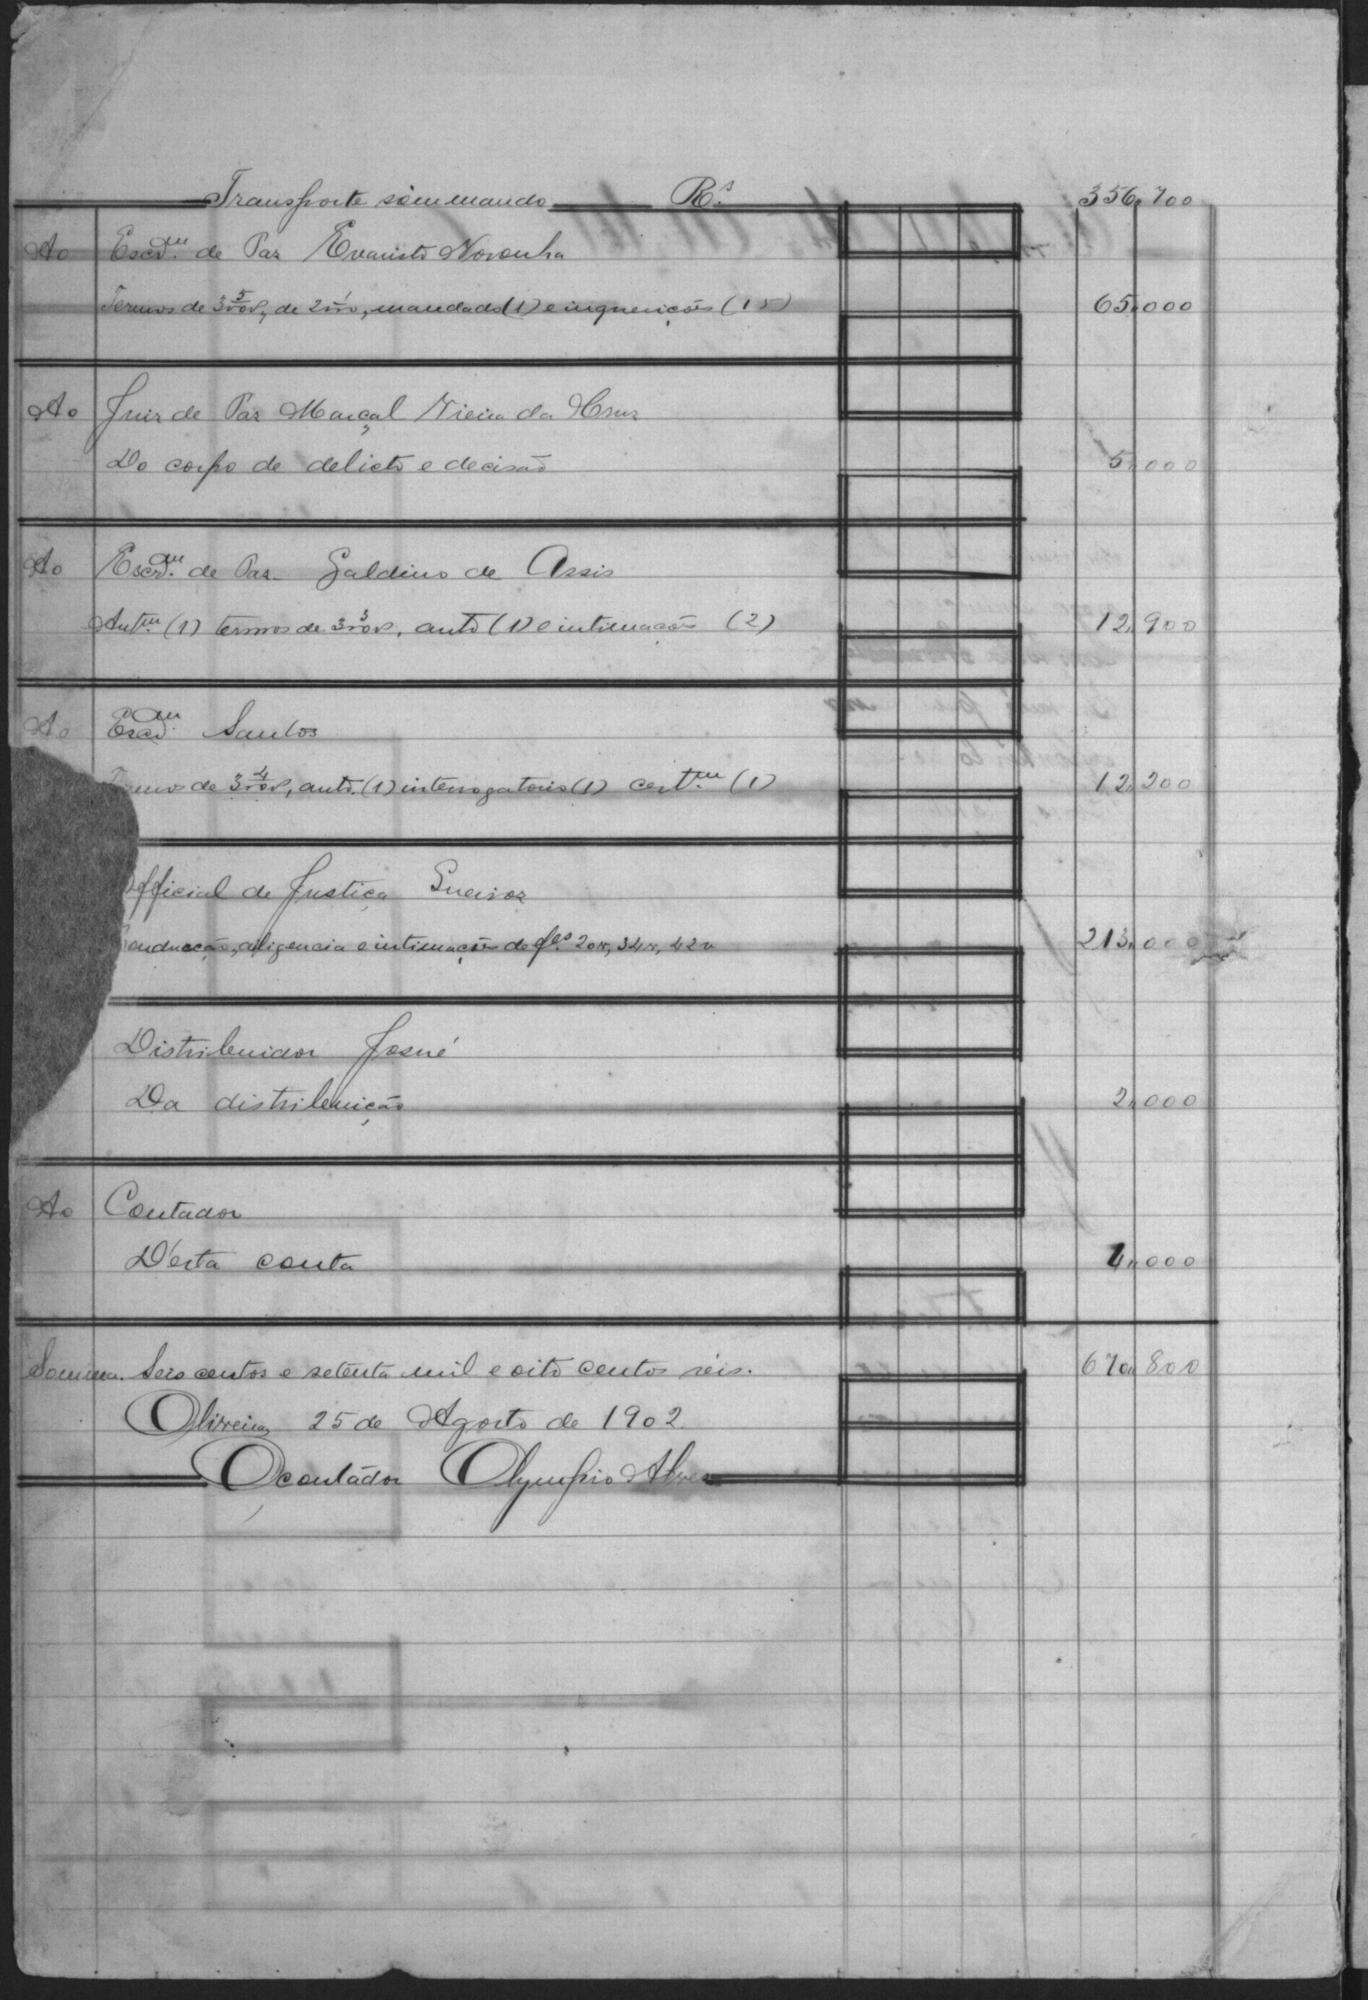 Transporte sommando Rs. 356,700
Ao Escrm. de Paz Evaristo Noronha
Termos de 3 5/200, de 2 1/, mandado (1) e inquerições (15) 65,000
Ao Juiz de Paz Marçal Vieira da Cruz
Do corpo de delicto e decisão 5,000
Ao Escrm. de Paz. Galdino de Assis
Autm. (1) termos de 3 3/200, auto (1) e intimação (2) 12,900
Ao Escrm. Santos
de 3 4/200, auto. (1) interrogatorio (1) certm. (1) 12,200
Official de Justiça
Conducção, diligencia e intimações de fls. 20v, 34v, 42v 213,000
Distribuidor Josué
Da distribuição 2,000
Ao Contador
D'esta conta 4,000
Somma. Seis centos e setenta mil e oito centos réis. 670,800
Oliveira, 25 de Agosto de 1902.
O contador Olympio Alves